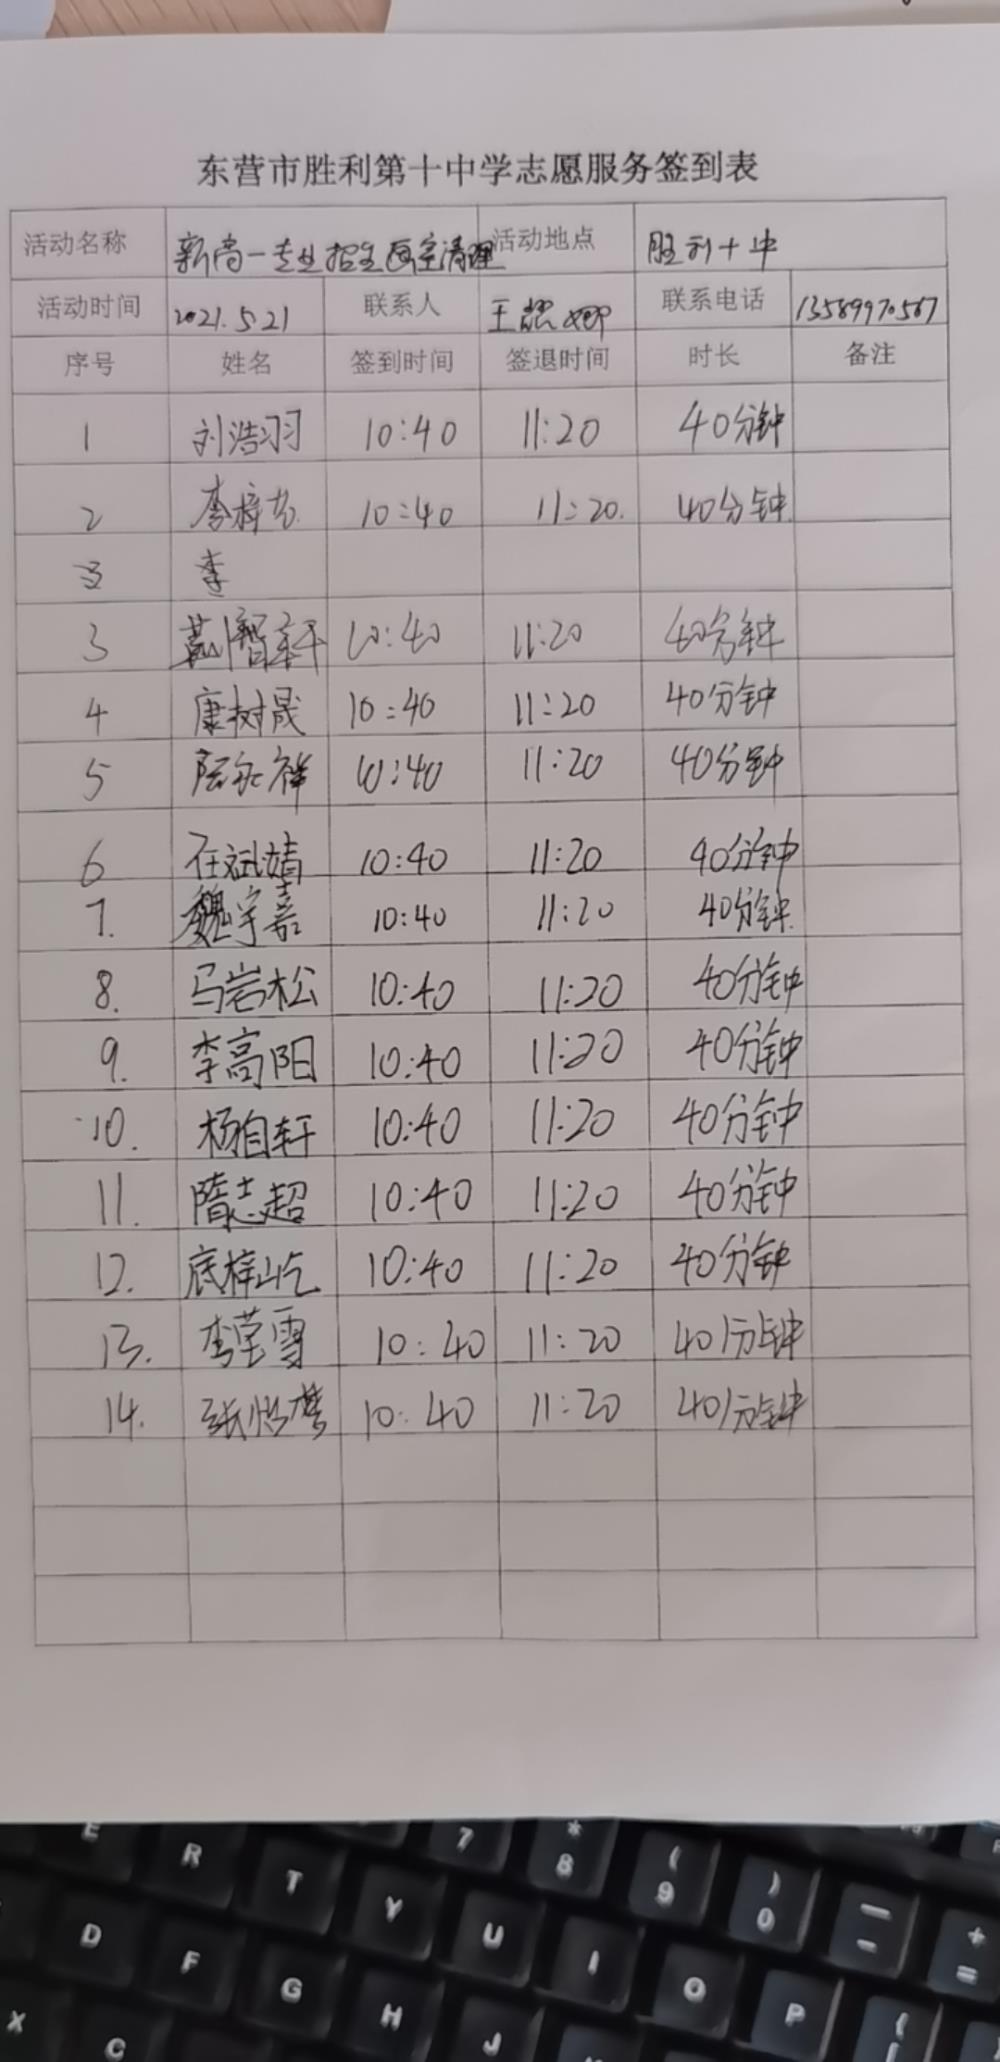 东营市胜利第十中学志愿服务签到表
活动名称 新高一专业招生画室清理 活动地点 胜利十中
活动时间 2021.5.21 联系人 王 联系电话 13589970567
序号 姓名 签到时间 签退时间 时长 备注
1 刘浩羽 10:40 11:20 40分钟
2 李梓 10:40 11:20. 40分钟.
3 李
3 智轩 10:40 11:20 40分钟
4 康树晟 10:40 11:20 40分钟
5 祥 10:40 11:20 40分钟
6 任斌靖 10:40 11:20 40分钟
7. 魏宇嘉 10:40 11:20 40分钟
8. 马岩松 10:40 11:20 40分钟
9. 李高阳 10:40 11:20 40分钟
10. 杨自轩 10:40 11:20 40分钟
11. 隋志超 10:40 11:20 40分钟
12. 底梓屹 10:40 11:20 40分钟
13. 李莹雪 10:40 11:20 40分钟
14. 张怡梦 10:40 11:20 40分钟
E R T Y U I O P {
7 * 8 ( 9 ) 0 — - + =
D F G H J
X C